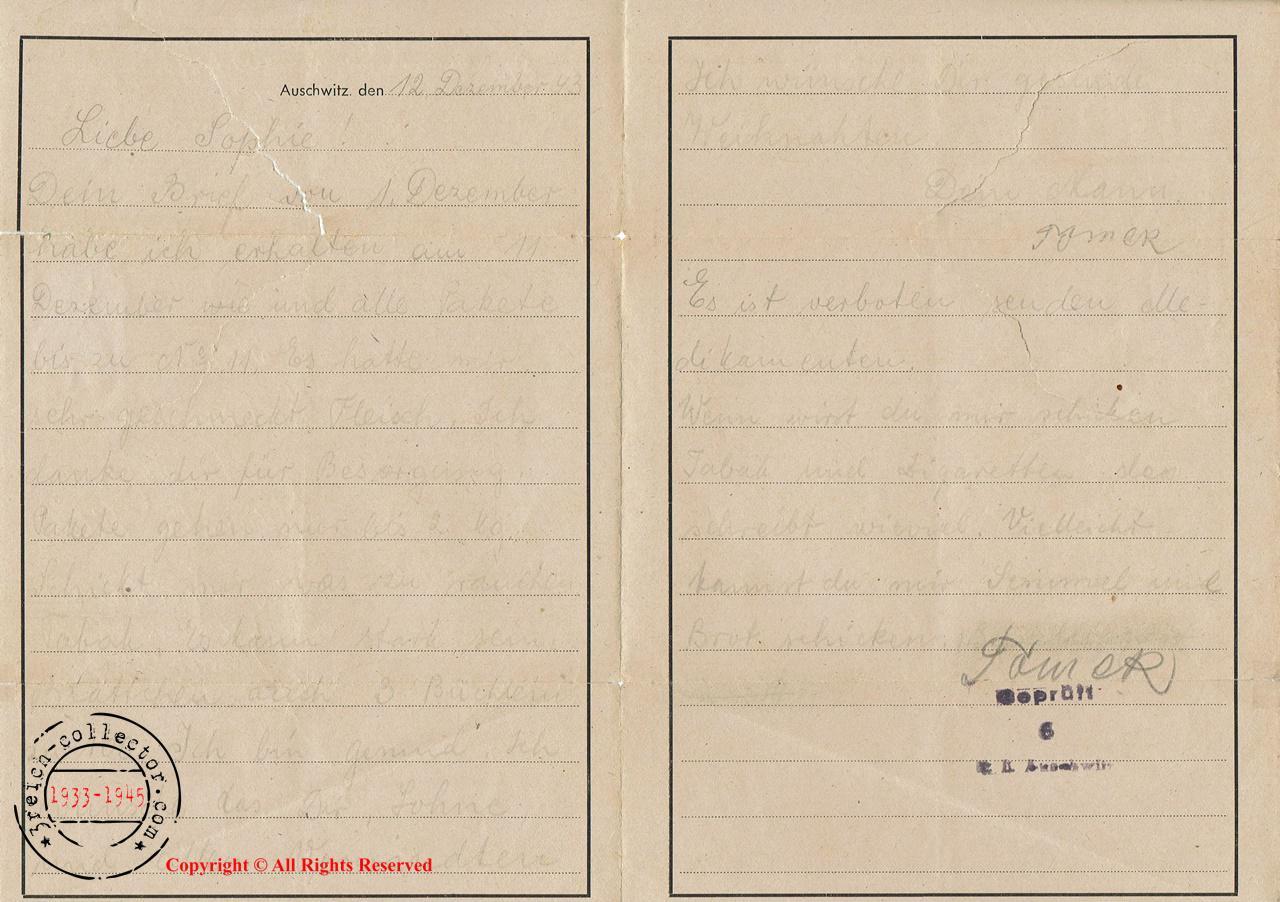 Auschwitz. den 12 Dezember 43
Liebe Sophie!
Dein Brief von 1. Dezember
habe ich erhalten am 11
Dezember und alle Pakete
bis zu 11. Es hatte mir
sehr geschmeckt Fleisch. Ich
danke dir für Besorgung.
Pakete gehen nur bis 2 kg.
Schickt mir was zu rauchen
Tabak. Es kann stark sein.
3
Ich bin gesund ich
das
Ich wünsche Dir gesunde
Weihnahten
Dein Mann.
Tomek
Es ist verboten senden Me-
dikamenten.
Wenn wirst du mir schicken
Tabak und Zigaretten
schreibt wieviel. Vielleicht
kannst du mir Semmel und
Brot schicken
Tomek
Geprüft
6
K. L. Auschwitz
3reich-collector.com
1933-1945
Copyright © All Rights Reserved